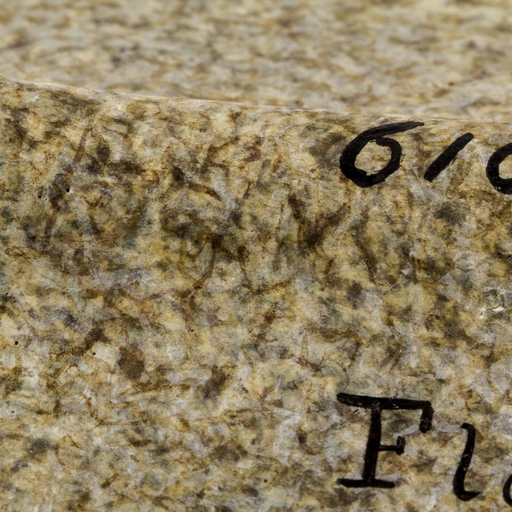 610
Fl